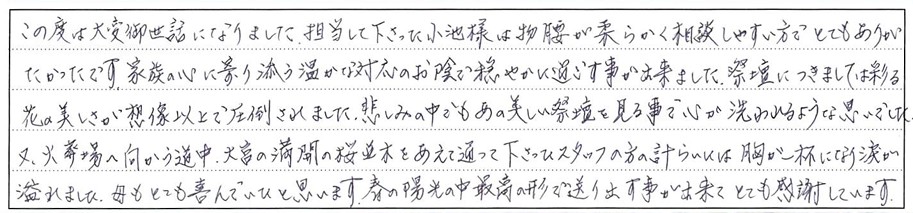 この度は大変御世話になりました。担当して下さった小池様は物腰が柔らかく相談しやすい方でとてもありが
たかったです。家族の心に寄り添う温かな対応のお陰で穏やかに過ごす事が出来ました。祭壇につきましては彩る
花の美しさが想像以上で圧倒されました。悲しみの中でもあの美しい祭壇を見る事で心が洗われるような思いでした。
又、火葬場へ向かう道中、大宮の満開の桜並木をあえて通って下さったスタッフの方の計らいには胸が一杯になり涙が
溢れました。母もとても喜んでいたと思います。春の陽光の中最高の形で送り出す事が出来てとても感謝しています。